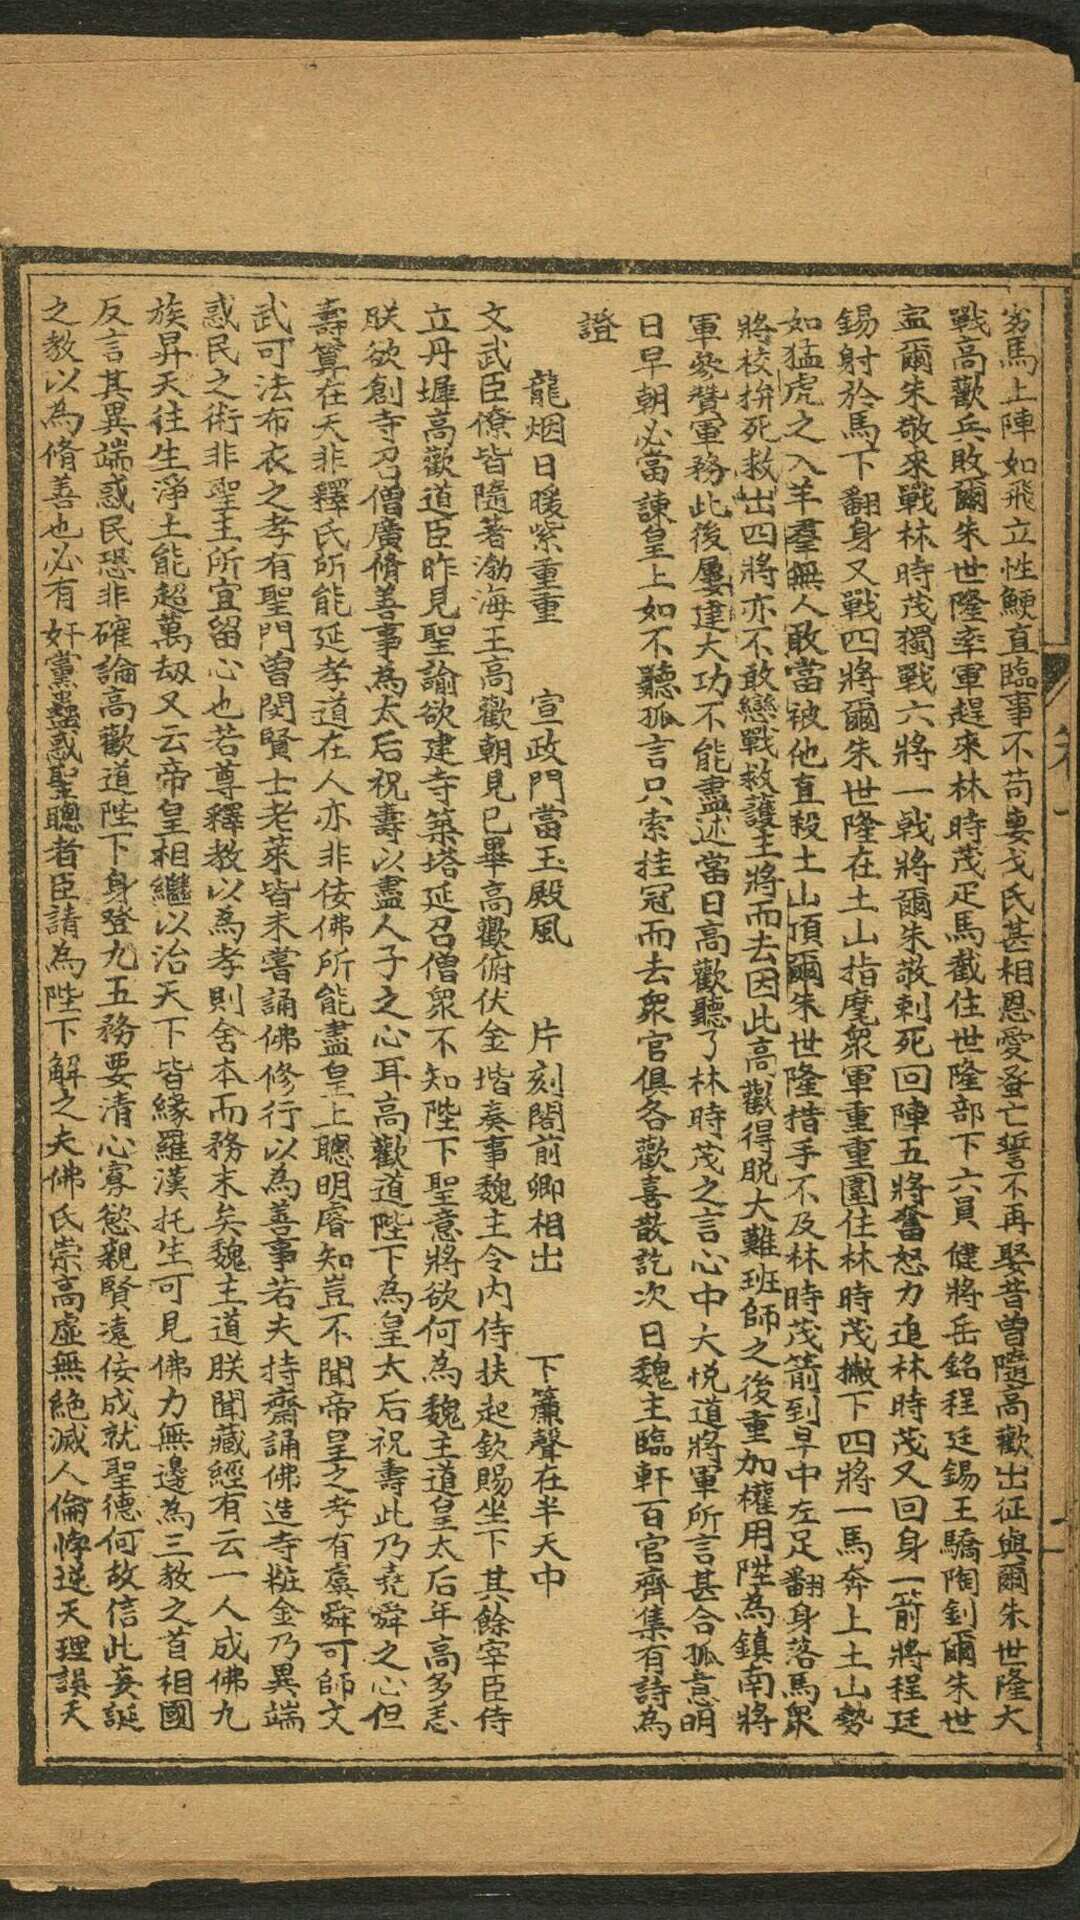 穷馬上陣如飛立性鯁直臨事不苟妻戈氏甚相恩愛蚤亡誓不再娶昔曾隨高歡出征與爾朱世隆大
戰高歡兵敗爾朱世隆率軍趕來林時茂疋馬截住世隆部下六員健將岳銘程廷錫王驕陶釗爾朱世
爾朱敬來戰林時茂獨戰六將一戟將爾朱敬刺死回陣五將奮怒力追林時茂又回身一箭將程廷
錫射於馬下翻身又戰四將爾朱世隆在土山指麾衆軍重重圍住林時茂撇下四將一馬奔上土山勢
如猛虎之入羊羣無人敢當被他直殺土山頂爾朱世隆措手不及林時茂箭到早中左足翻身落馬衆
將校拚死救出四將亦不敢戀戰救護主將而去因此高歡得脱大難班師之後重加權用陞為鎮南將
軍叅贊軍務此後屢建大功不能盡述當日高歡聽了林時茂之言心中大悦道將軍所言甚合孤意明
日早朝必當諫皇上如不聽孤言只索挂冠而去衆官俱各歡喜散訖次日魏主臨軒百官齊集有詩為
證
龍烟日暖紫重重　宣政門當玉殿風　片刻閣前卿相出　下簾聲在半天中
文武臣僚皆隨著渤海王高歡朝見已畢高歡俯伏金堦奏事魏主令内侍扶起欽賜坐下其餘宰臣侍
立丹墀高歡道臣昨見聖諭欲建寺築塔延召僧衆不知陛下聖意將欲何為魏主道皇太后年高多恙
朕欲創寺召僧廣脩善事為太后祝壽以盡人子之心耳高歡道陛下為皇太后祝壽此乃堯舜之心但
壽算在天非釋氏所能延孝道在人亦非佞佛所能盡皇上聰明睿知豈不聞帝皇之孝有虞舜可師文
武可法布衣之孝有聖門曾閔賢士老萊皆未嘗誦佛修行以為善事若夫持齋誦佛造寺粧金乃異端
惑民之術非聖主所宜留心也若尊釋教以為孝則舍本而務末矣魏主道朕聞藏經有云一人成佛九
族昇天往生淨土能超萬劫又云帝皇相繼以治天下皆緣羅漢托生可見佛力無邊為三教之首相國
反言其異端惑民恐非確論高歡道陛下身登九五務要清心寡慾親賢遠佞成就聖德何故信此妄誕
之教以為脩善也必有奸黨蠱惑聖聰者臣請為陛下解之夫佛氏崇高虛無絶滅人倫悖逆天理誤天